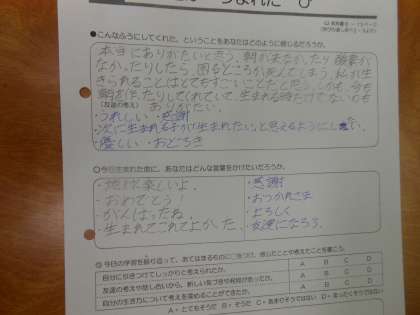 ●こんなふうにしてくれた、ということをあなたはどのように感じるだろうか。
本当にありがたいと思う。朝が来なかったり酸素が
なかったりしたら、困るどころか死んでしまう。私が生
きられることはとてもすごいことだと思う。しかも、今も
ありがたい。
(友達の考え)
・うれしい ・感謝
・次に生まれる子が「生まれたい」と思えるようにしたい
・優しい ・おどろき
○今日生まれた命に、あなたはどんな言葉をかけたいだろうか。
地球は楽しいよ。
おめでとう!
がんばったね。
生まれてこれてよかった。
・感謝
・おつかれさま
・よろしく
・友達になろう。
◎今日の学習を振り返って、あてはまるものに○をつけ、感じたことや考えたことを書こう。
自分に引きつけてしっかりと考えられたか。
A B C D
友達の考えや話し合いから、新しい気づきや発見があったか。
A B C D
自分の生き方について考えを深めることができたか。
A B C D
A・とてもそうだ B・そうだ C・あまりそうではない D・まったくそうではない